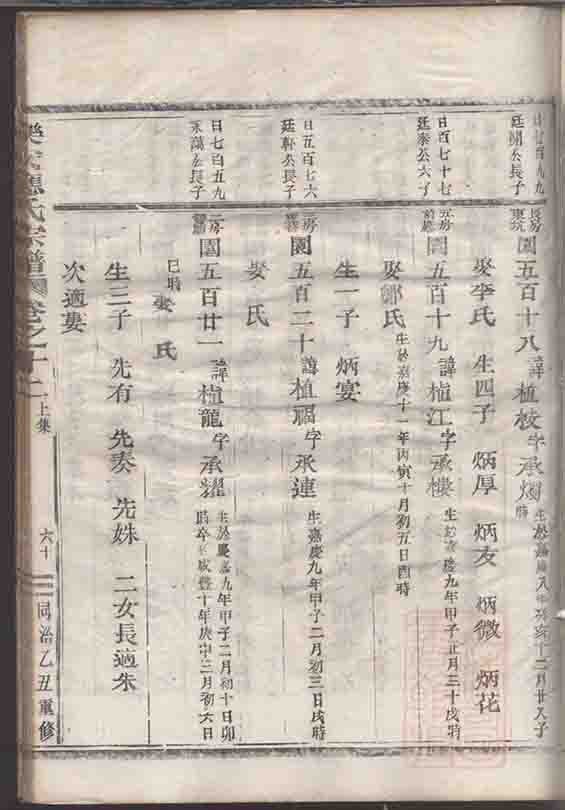 日七百九九
廷開公長子
長房
東坑
園五百十八 諱植校 字承燭 生於嘉慶八年癸亥十二月廿八子
時
娶李氏 生四子 炳厚 炳友 炳微 炳花
日百七十七
廷泰公六子
五房
園五百十九 諱植江 字承樓 生於嘉慶九年甲子正月三十戌時
娶鄭氏 生於嘉慶十一年丙寅十月初五日酉時
生一子 炳宴
日五百七六
廷軒公長子
房
園五百二十 諱植福 字承連 生嘉慶九年甲子二月初三日戌時
娶 氏
日七百五九
永蒲公長子
二房
園五百廿一 諱植龍 字承耀 生於嘉慶九年甲子二月初十日卯
時卒於咸豐十年庚申三月初六日
巳時
娶 氏
生三子 先有 先奏 先姝 二女長適朱
次適婁
氏宗譜 卷之十二 上集
六十
同治乙丑重修